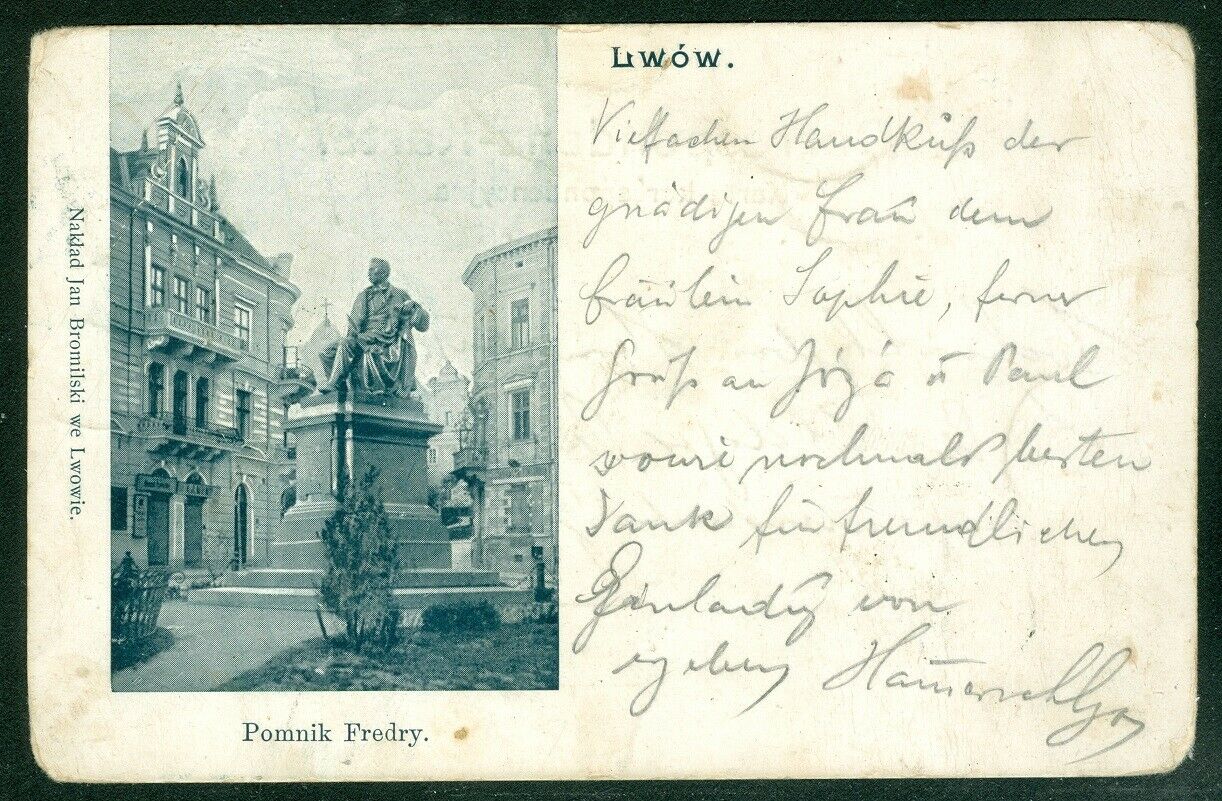 Lwów.
Vielfachen Handkuß der
gnädigen Frau dem
Fräulein Sophie, ferner
Gruß an Józia u Paul
sowie nochmals besten
Dank für freundlichen
Einladung von
ergebenen
Nakład Jan Bromilski we Lwowie.
Pomnik Fredry.